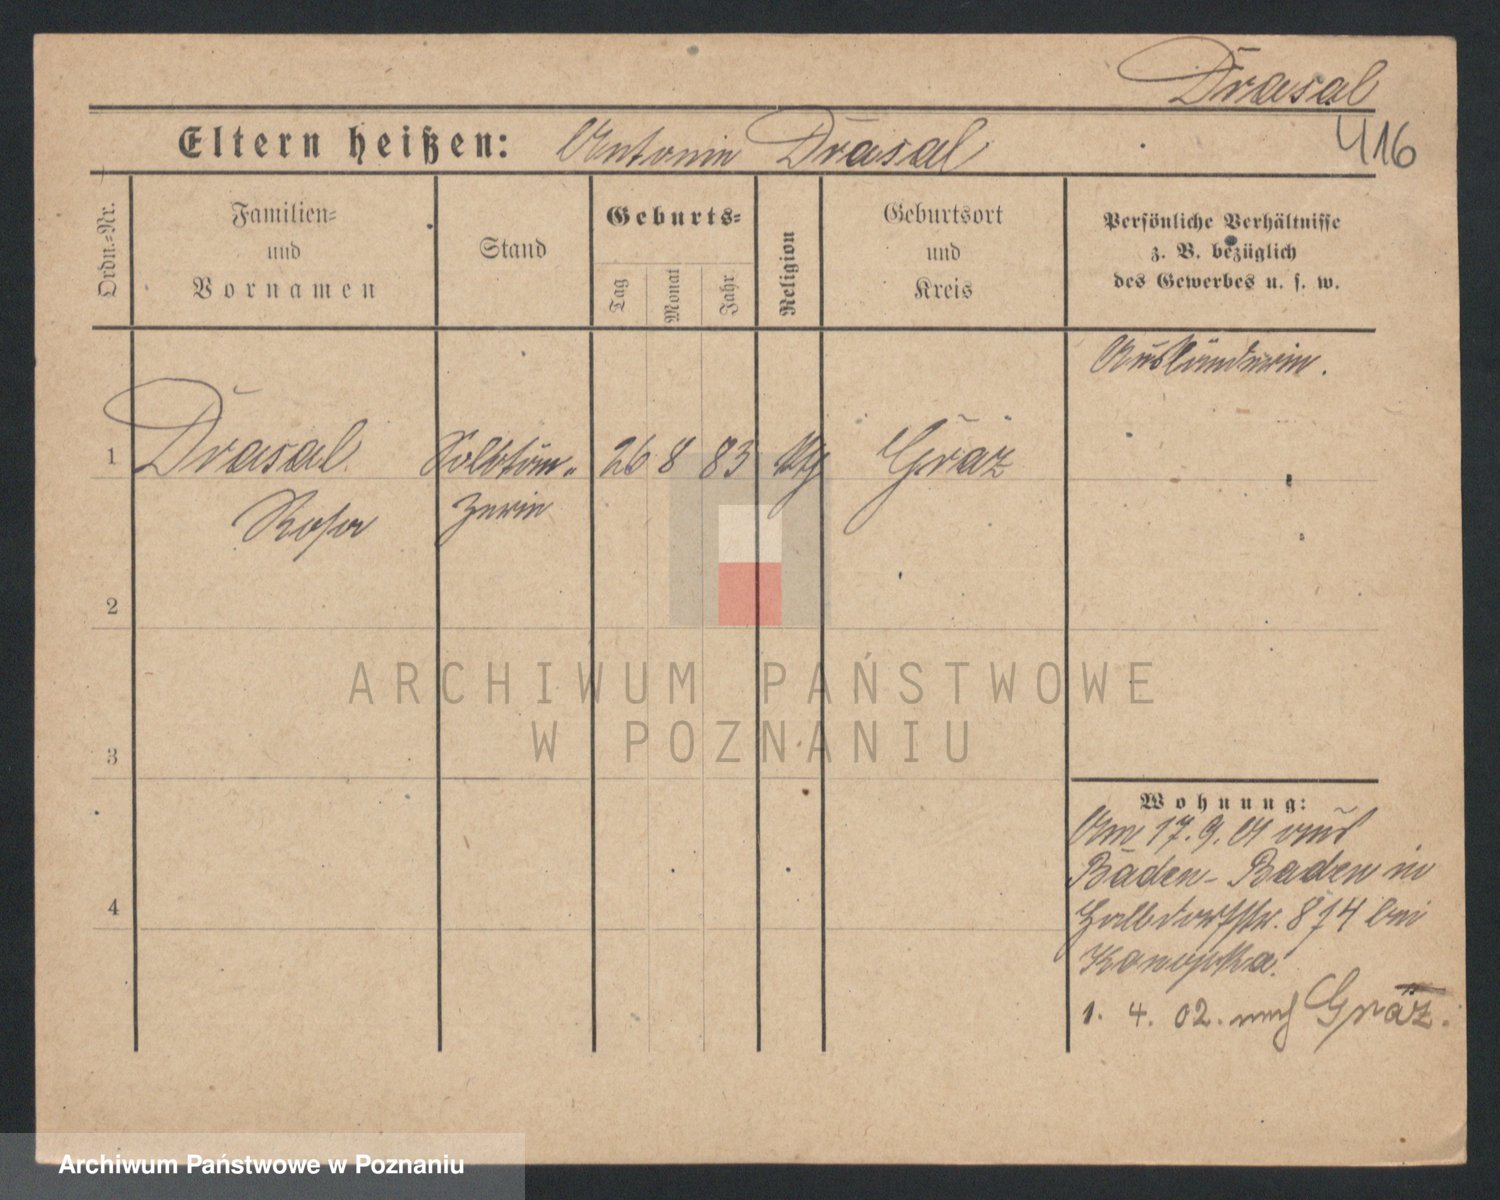 Drasal
416
Eltern heißen: Antonie Drasal
Ordn.-Nr.
Familien-
und
Vornamen
Stand
Geburts-
Tag
Monat
Jahr
Religion
Geburtsort
und
Kreis
Persönliche Verhältnisse
z. B. bezüglich
des Gewerbes u. s. w.
Ausländerin.
1 Drasal Solotän- 26 8 83 Graz
Rosa zerin
2
3
4
Wohnung:
Am 17.9.01 aus
Baden-Baden in
Halbdorfstr. 874 bei
Konopka.
1. 4. 02. nach Graz.
ARCHIWUM PAŃSTWOWE
W POZNANIU
Archiwum Państwowe w Poznaniu